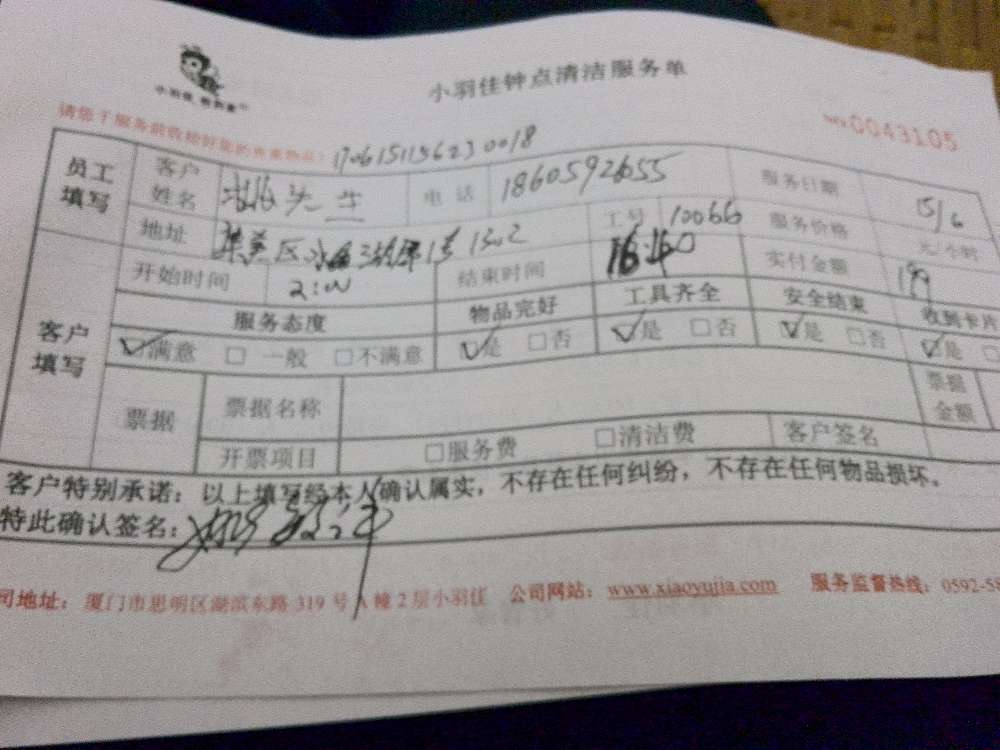 小羽佳钟点清洁服务单
小羽佳
请您于服务前收拾好您的贵重物品! 1706151156230018
No 0043105
员工填写 客户姓名 先生 电话 18605926655 服务日期 15/6
地址 集美区 1号1302 工号 10066 服务价格 元/小时
开始时间 2:00 结束时间 16:40 实付金额 199
客户填写 服务态度 物品完好 工具齐全 安全结束 收到卡片
☑满意 □一般 □不满意 ☑是 □否 ☑是 □否 ☑是 □否 ☑是 □
票据 票据名称 票据金额
开票项目 □服务费 □清洁费 客户签名
客户特别承诺:以上填写经本人确认属实,不存在任何纠纷,不存在任何物品损坏。
特此确认签名:
司地址:厦门市思明区湖滨东路319号A幢2层小羽佳 公司网站:www.xiaoyujia.com 服务监督热线:0592-55